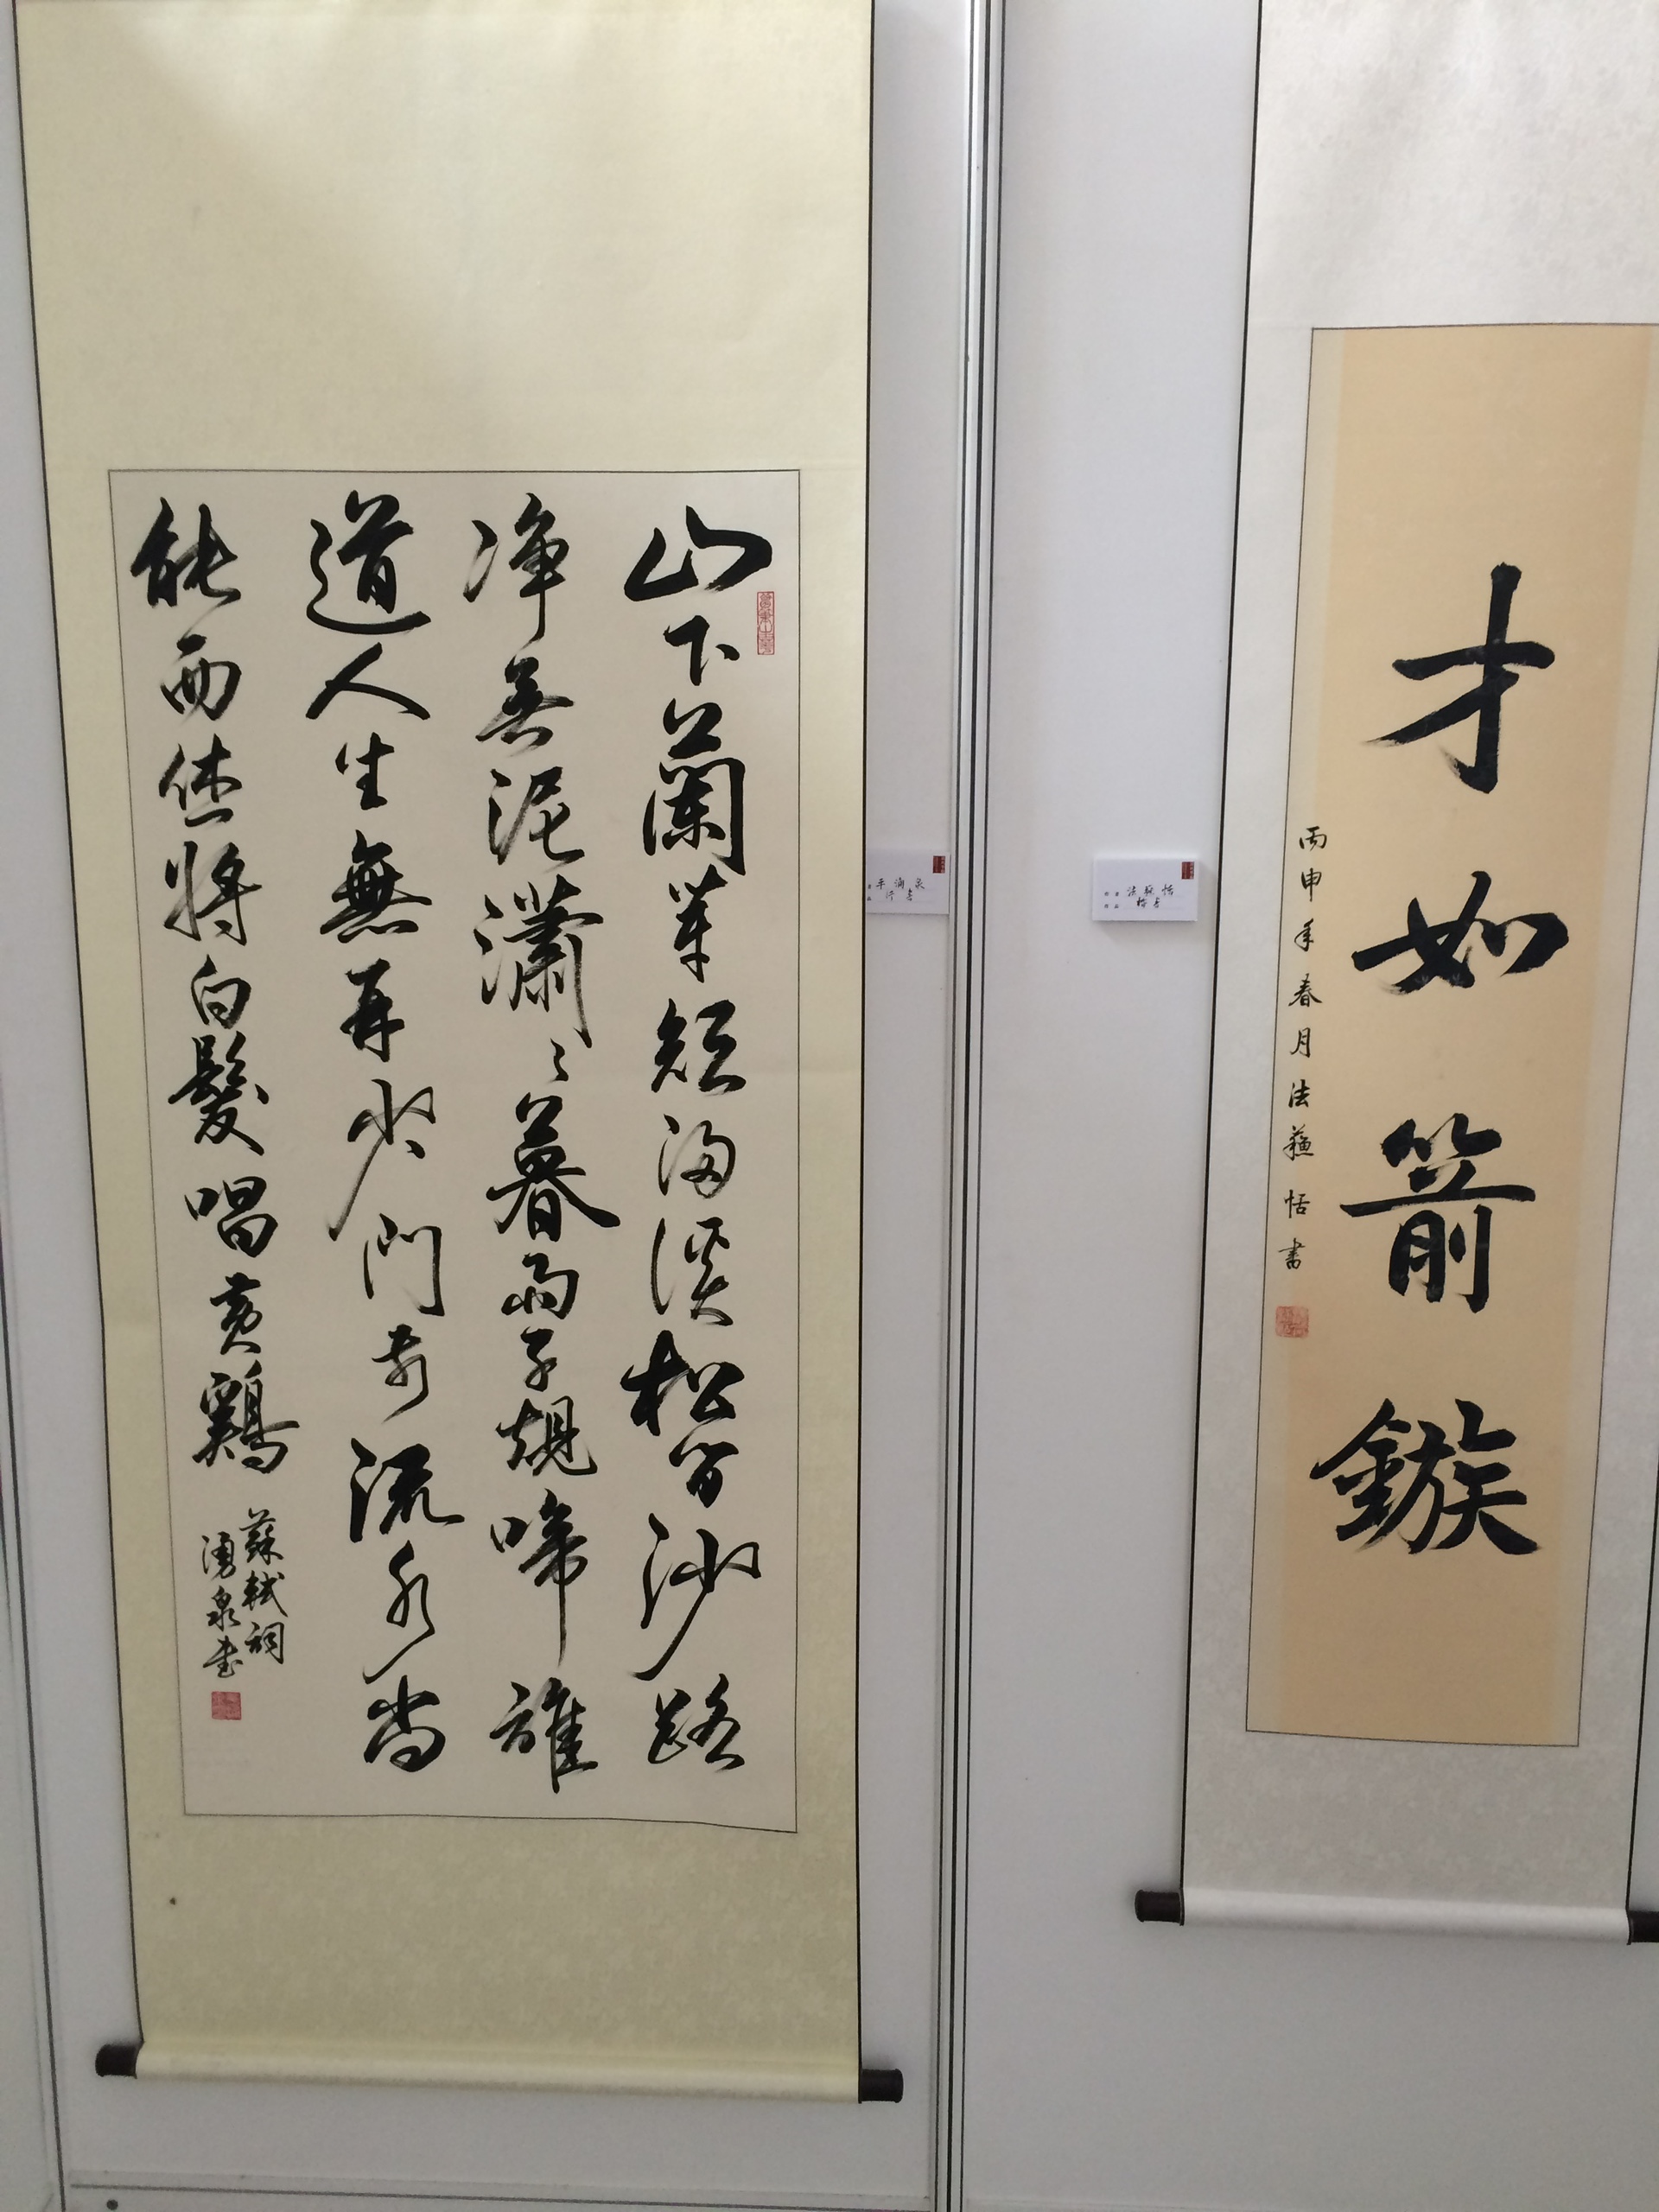 才如箭鏃
丙申年春月法蘓恬書
法蘓恬
楷書
山下蘭芽短浸溪松間沙路
淨無泥瀟〻暮雨子規啼誰
道人生無再少門前流水尚
能西休將白髮唱黃鷄
蘇軾詞
湧泉書
平涌泉
行書